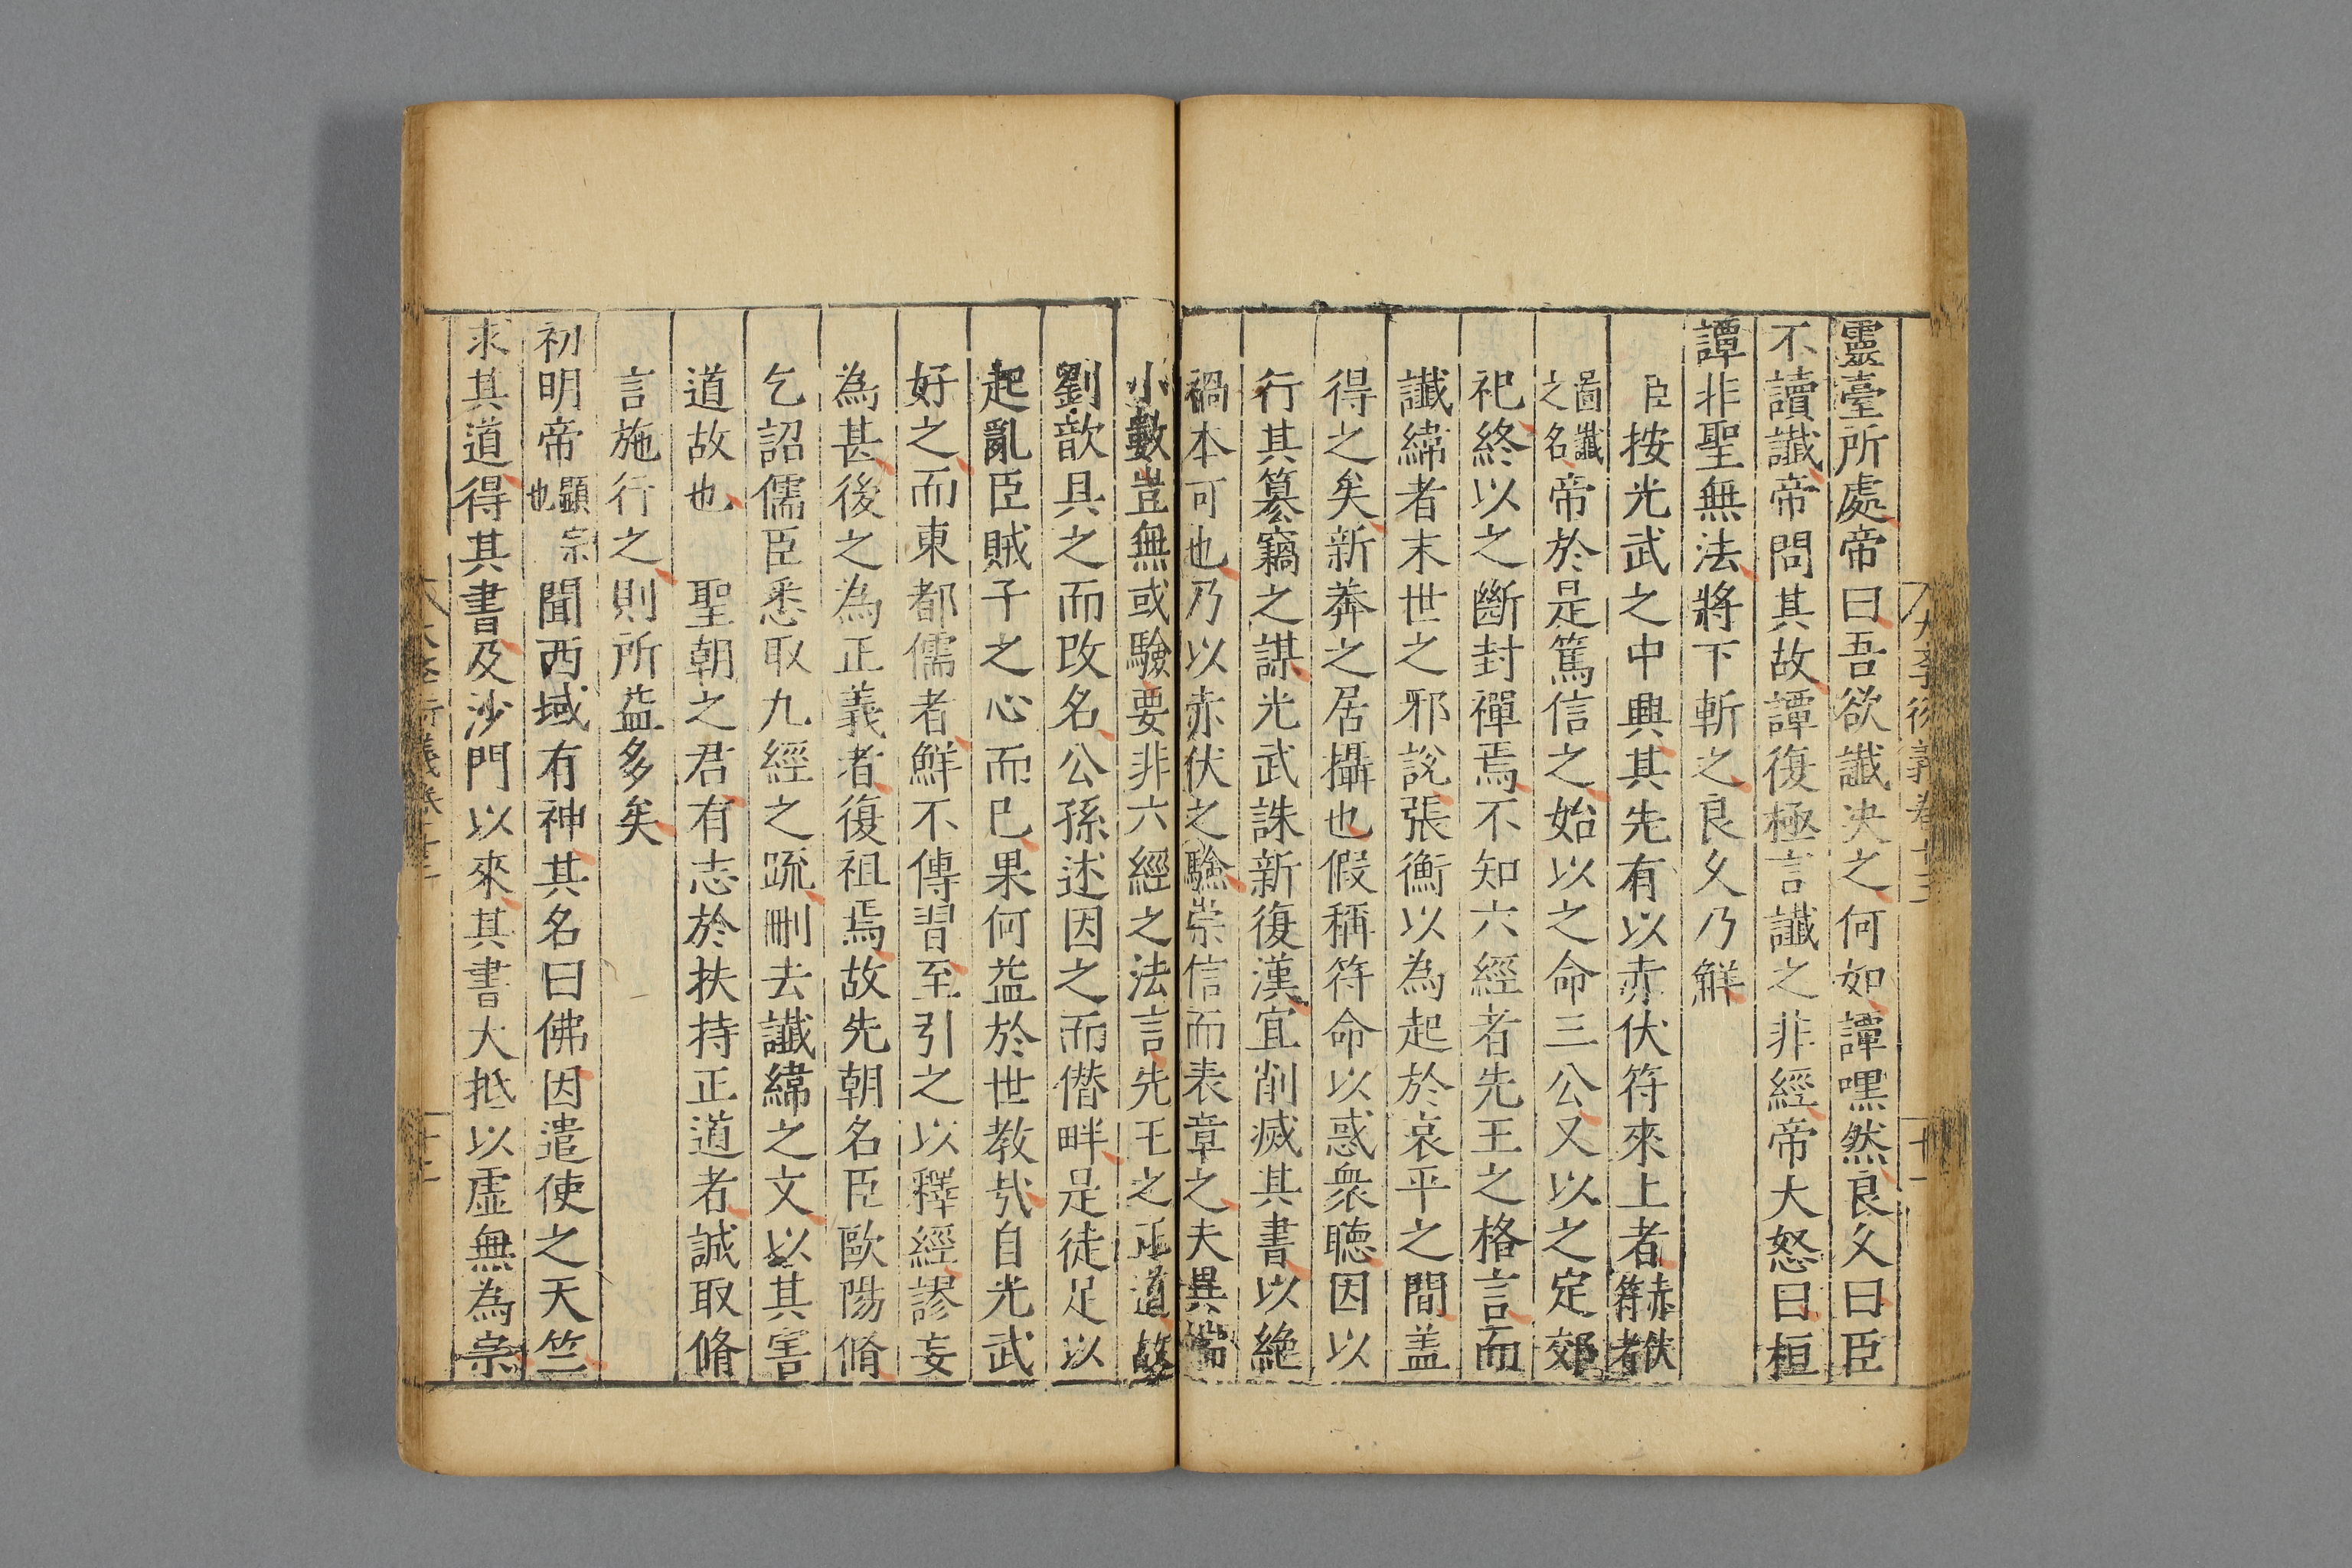 靈臺所處帝曰吾欲讖决之何如譚嘿然良乆曰臣
不讀讖帝問其故譚復極言讖之非經帝大怒曰桓
譚非聖無法將下斬之良乆乃鮮
臣按光武之中興其先有以赤伏符來上者赤伏符者
圖讖之名帝於是篤信之始以之命三公又以之定郊
祀終以之斷封禪焉不知六經者先王之格言而
讖緯者末世之邪說張衡以為起於哀平之間盖
得之矣新莽之居攝也假稱符命以惑衆聴因以
行其簒竊之謀光武誅新復漢宜削滅其書以絶
禍本可也乃以赤伏之驗崇信而表章之夫異端
小數豈無或驗要非六經之法言先王之正道故
劉歆具之而改名公孫述因之而僣畔是徒足以
起亂臣賊子之心而巳果何益於世教㢤自光武
好之而東都儒者鮮不傳習至引之以釋經謬妄
為甚後之為正義者復祖焉故先朝名臣歐陽脩
乞詔儒臣悉取九經之䟽刪去讖緯之文以其害
道故也 聖朝之君有志於扶持正道者誠取脩
言施行之則所益多矣
初明帝顯宗也聞西域有神其名曰佛因遣使之天竺
求其道得其書及沙門以來其書大抵以虛無為宗